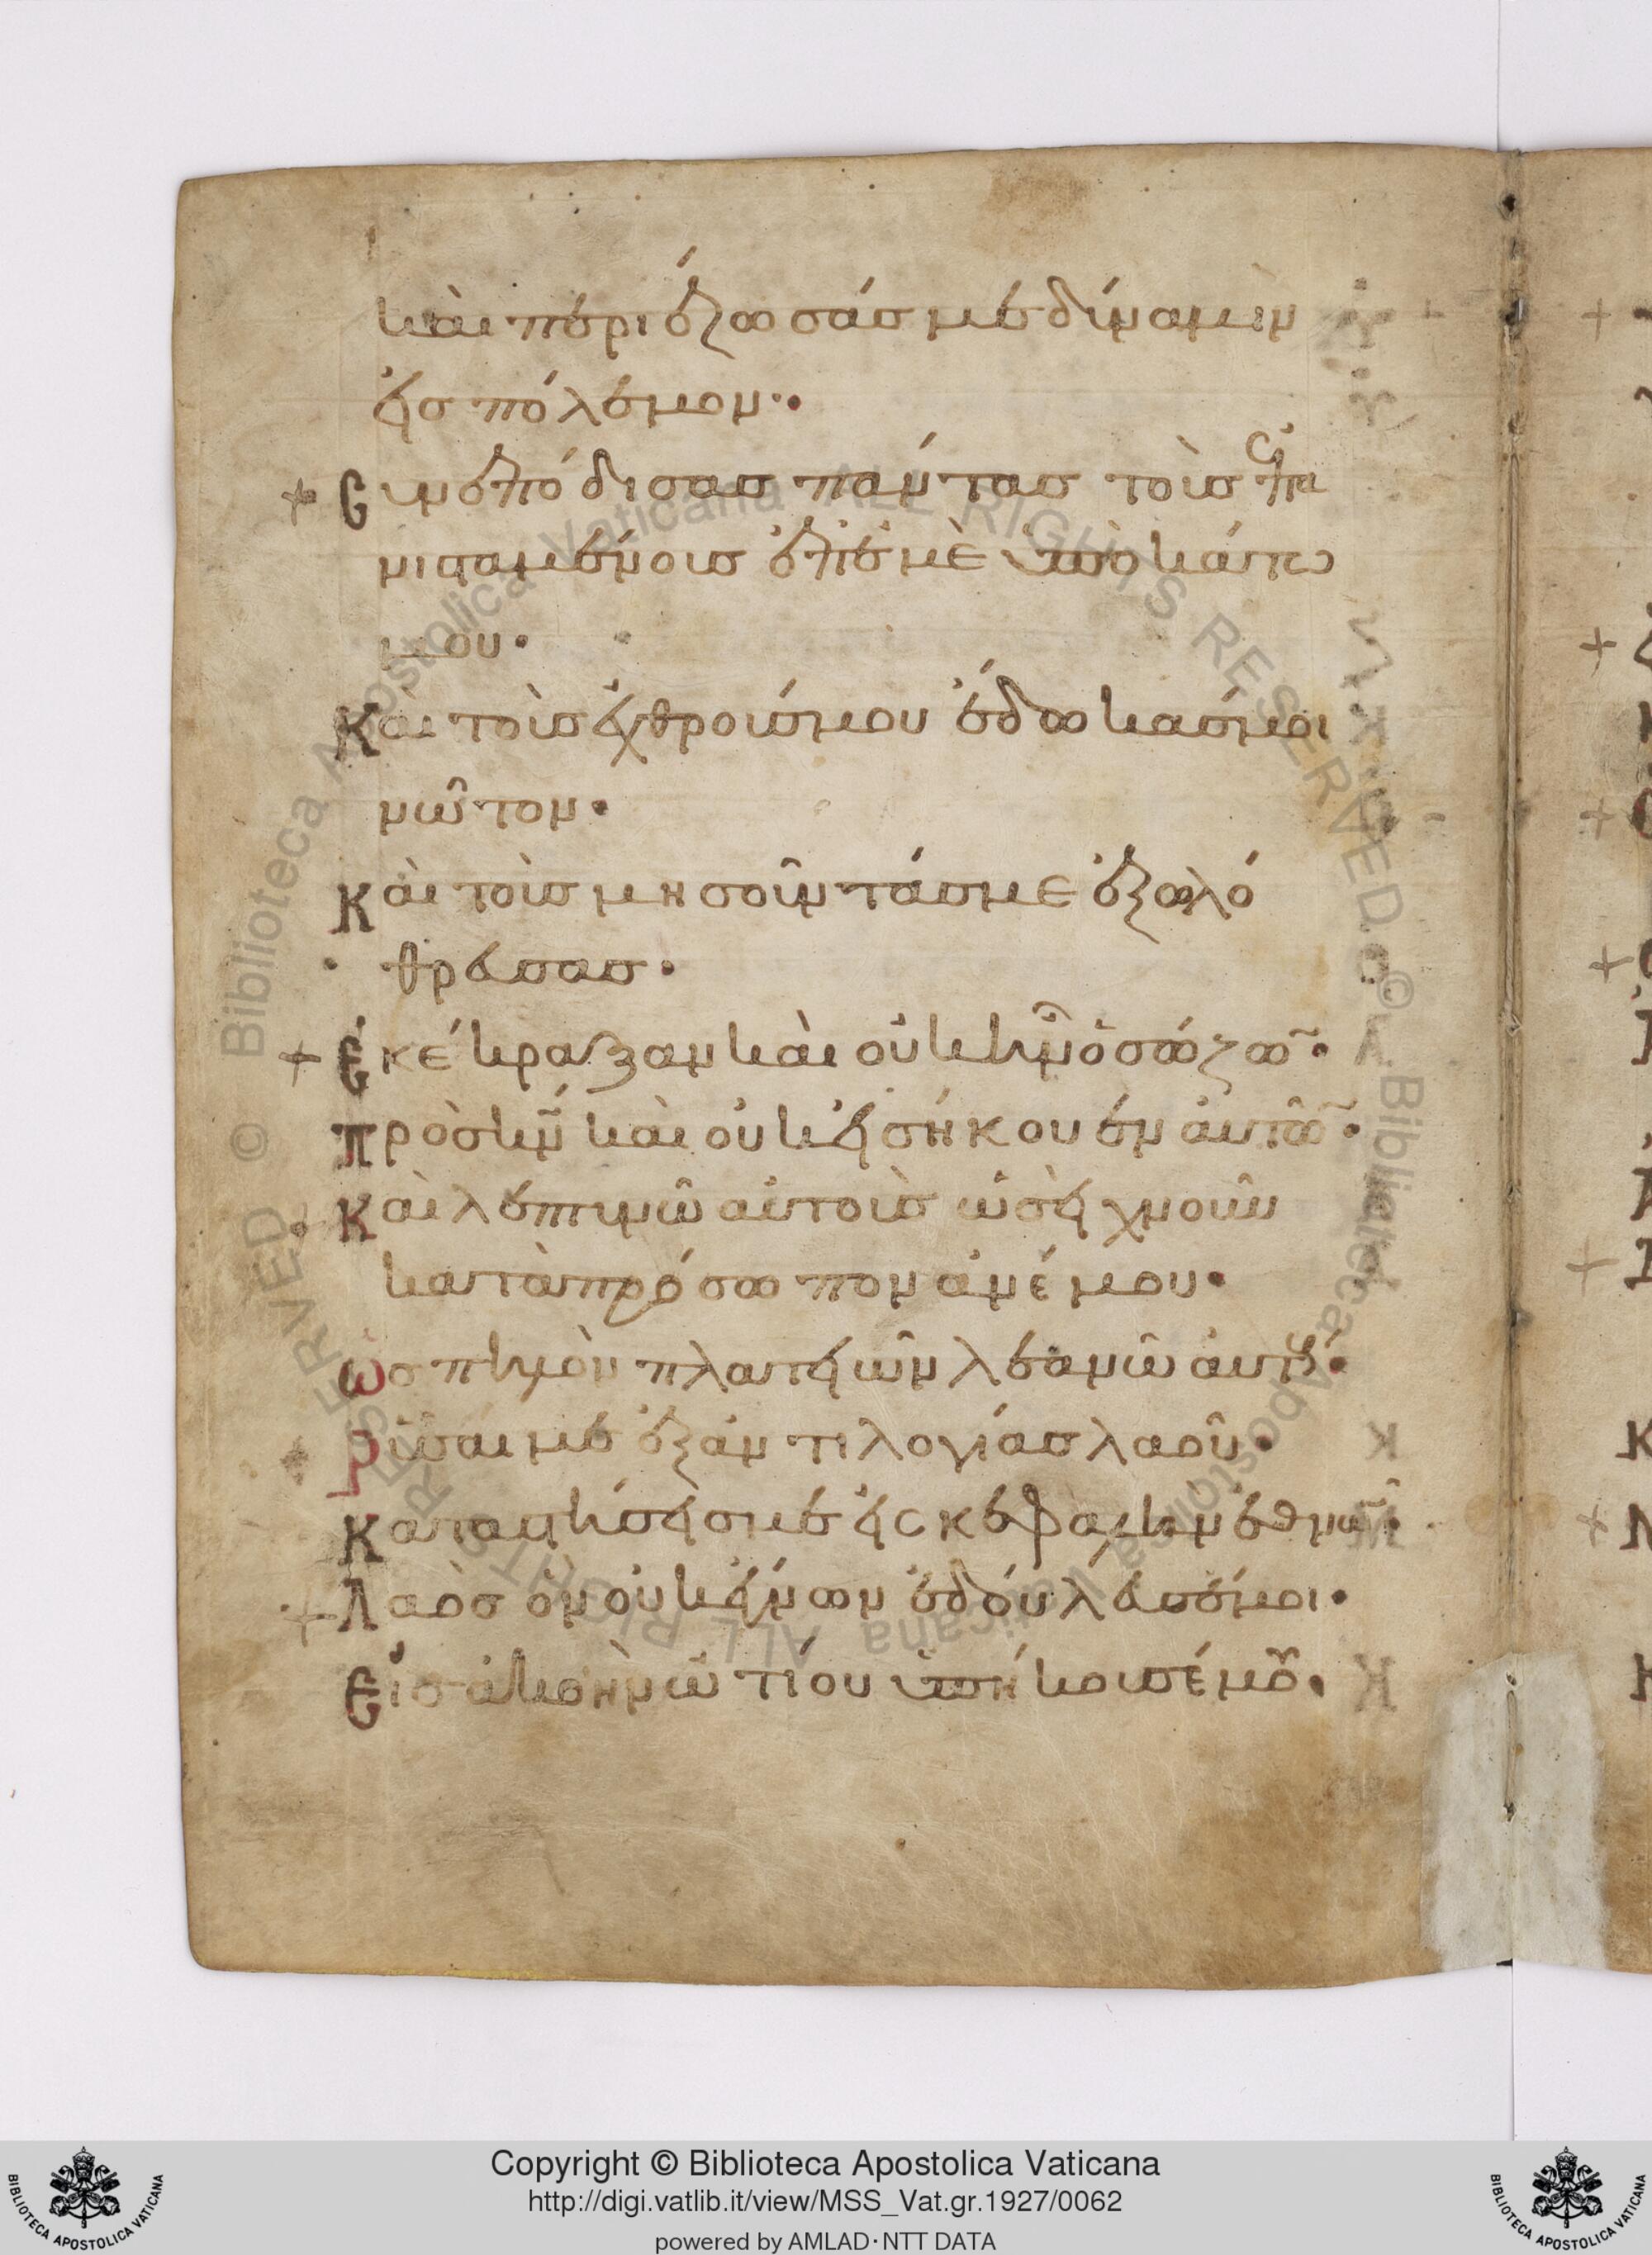 καὶ περιέζωσάς με δύναμιν
εἰς πόλεμον··
+ Συνεπόδισας πάντας τοὺς ἐπα
νισταμένους ἐπ' ἐμὲ ὑποκάτω
μου·
Καὶ τοὺς ἐχθρούς μου ἔδωκάς μοι
νῶτον·
Καὶ τοὺς μησοῦντάς με ἐξολό
θρευσας·
+ Ἐκέκραξαν καὶ οὐκ ἦν ὁ σώζω̃·
Πρὸς κν̃ καὶ οὐκ εἰσήκουσεν αὐτῶ̃·
Καὶ λεπτυνῶ αὐτοὺς ὡσεὶ χνοῦν
κατὰ πρόσωπον ἀνέμου·
Ὡς πηλὸν πλατειῶν λεανῶ αὐτούς·
Ρῦσαί με ἐξ ἀντιλογίας λαοῦ·
Καταστήσεις με εἰς κεφαλὴν ἐθνῶ̃·
+ Λαὸς ὃν οὐκ ἔγνων ἐδούλευσέ μοι·
Εἰς ἀκοὴν ὠτίου ὑπήκουσέ μου·
Biblioteca Apostolica Vaticana ALL RIGHTS RESERVED ©
Biblioteca Apostolica Vaticana ALL RIGHTS RESERVED ©
Copyright © Biblioteca Apostolica Vaticana
http://digi.vatlib.it/view/MSS_Vat.gr.1927/0062
powered by AMLAD·NTT DATA
BIBLIOTECA APOSTOLICA VATICANA
BIBLIOTECA APOSTOLICA VATICANA